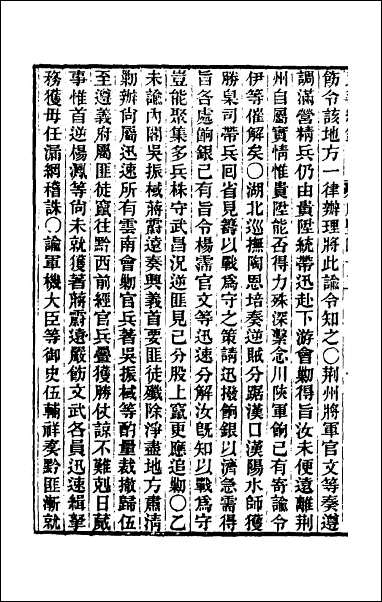 飭令該地方一律辦理將此諭令知之○荆州將軍官文等奏遵
調滿營精兵仍由貴陞統帶迅赴下游會勦得旨汝未便遠離荆
州自屬實情惟貴陞能否得力殊深繫念川陝軍餉已有寄諭令
伊等催解矣○湖北巡撫陶恩培奏逆賊分踞漢口漢陽水師獲
勝臬司帶兵回省見籌以戰爲守之策請迅撥餉銀以濟急需得
旨各處餉銀已有旨令楊霈官文等迅速分解汝旣知以戰爲守
豈能聚集多兵株守武昌況逆匪見已分股上竄更應追勦○乙
未諭內閣吳振棫蔣霨遠奏興義首要匪徒殲除淨盡地方肅清
勦辦尙屬迅速所有雲南會勦官兵著吳振棫等酌量裁撤歸伍
至遵義府屬匪徒竄往黔西前經官兵疊獲勝仗諒不難剋日蕆
事惟首逆楊漋等尙未就獲著蔣霨遠嚴飭文武各員迅速緝拏
務獲毋任漏網稽誅○諭軍機大臣等御史伍輔祥奏黔匪漸就